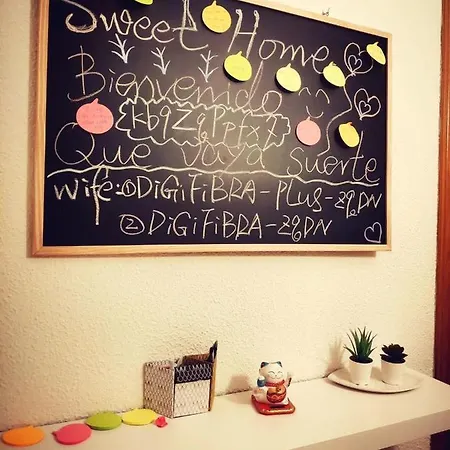 Sweet Home
Bienvenido
Que vaya suerte
Wife: ① DiGiFiBRA-PLUS-zqDN
② DiGiFiBRA-zqDN